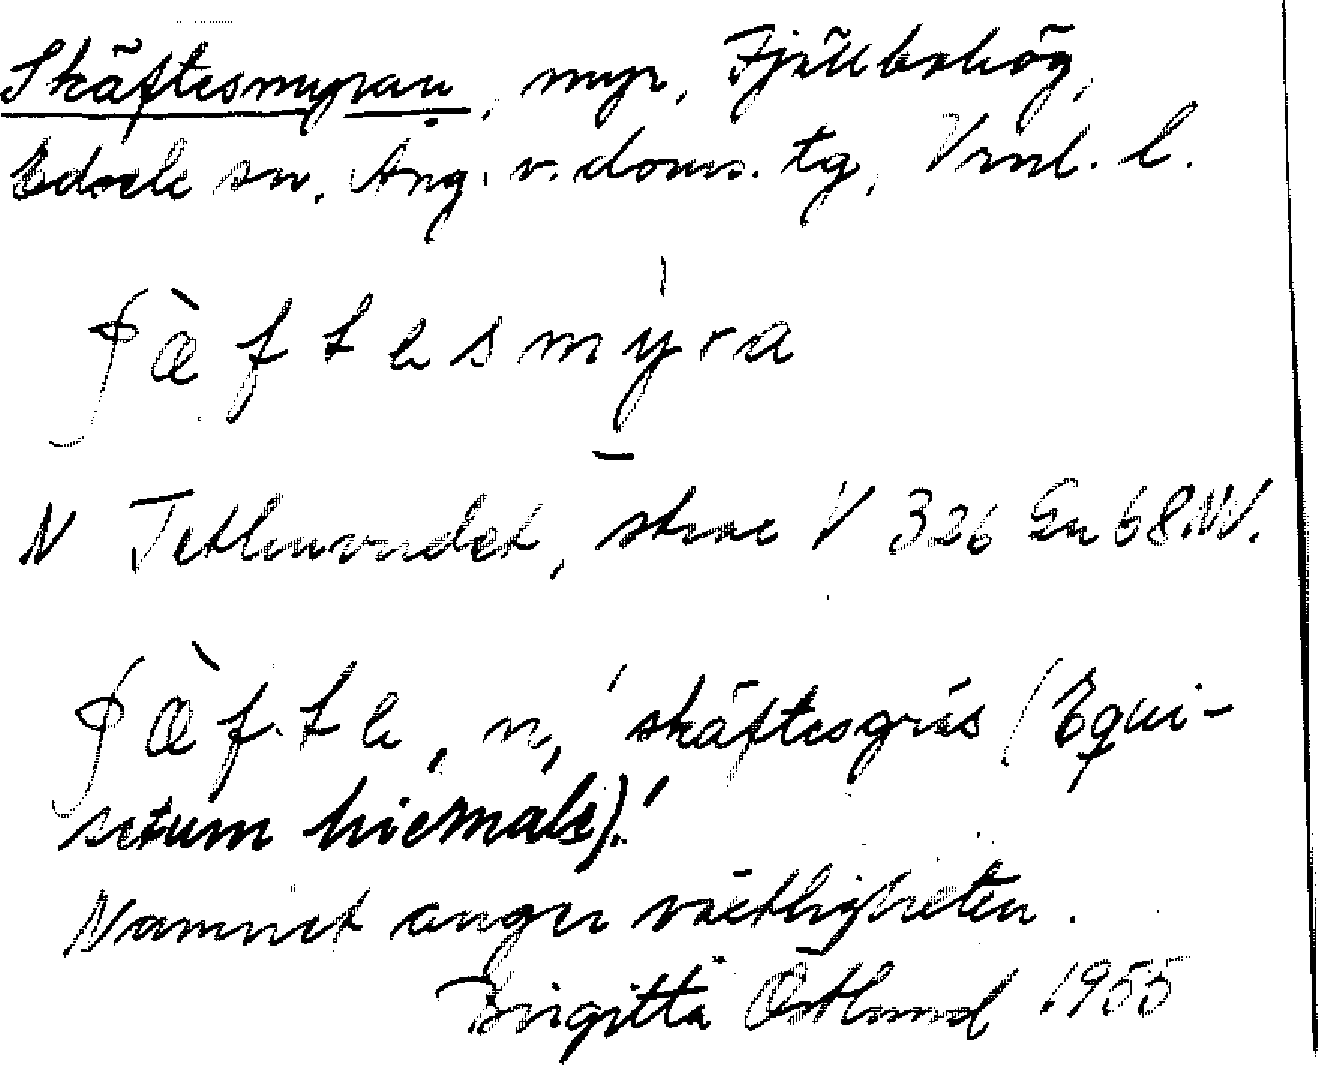 Skäftesmyran, myr, Fjällbohög,
Edsele sn, Ång. v. doms. tg, Vrnl. l.
ʃæ̀ftesmy̍ra
N Tetlu­vudet, strax V 326 En 68NV.
ʃæ̀fte, n, 'skäftesgräs (Equi-
setum hiemale).'
Namnet anger växtligheten.
Birgitta Östlund 1955